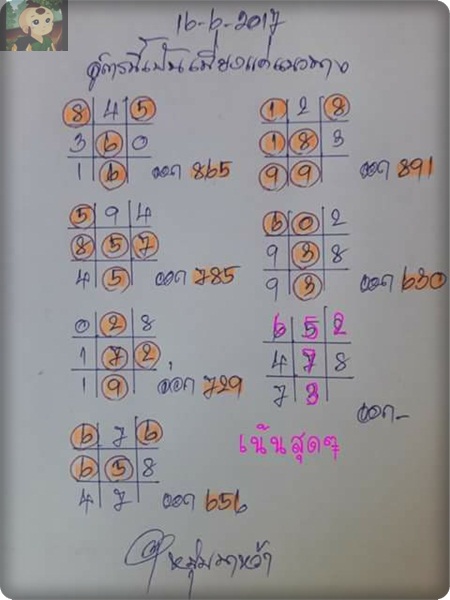 16-6-2017
สูตรนี้เป็นเพียงแค่แนวทาง
8 4 5
3 6 0
1 6 ออก 865
1 2 8
1 8 3
9 9 ออก 891
5 9 4
8 5 7
4 5 ออก 785
6 0 2
9 3 8
9 3 ออก 630
0 2 8
1 7 2
1 9 ออก 729
6 5 2
4 7 8
7 3 ออก-
6 7 6
6 5 8
4 7 ออก 656
เน้นสุดๆ